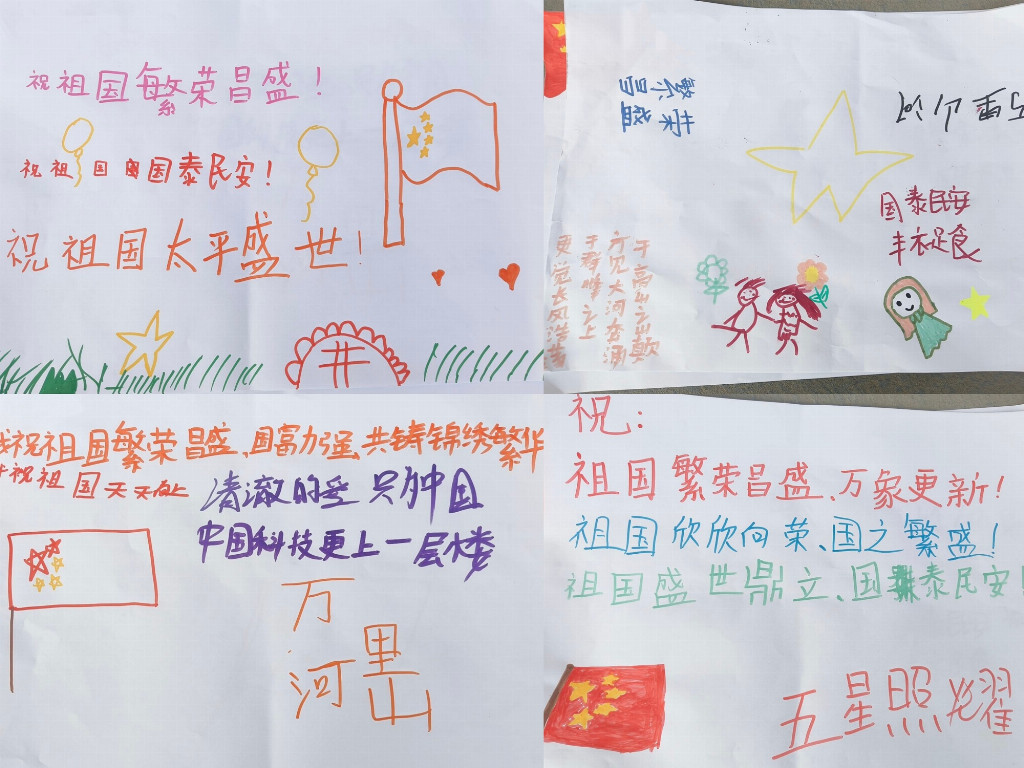 祝祖国繁荣昌盛！
祝祖国国泰民安！
祝祖国太平盛世！
繁荣
昌盛
国泰民安
丰衣足食
于高山之巅
方见大河奔涌
于群峰之上
更觉长风浩荡
祝祖国繁荣昌盛、国富力强、共铸锦绣繁华
祝祖国天天向上
清澈的爱 只为中国
中国科技更上一层楼
万里
河山
祝：
祖国繁荣昌盛、万象更新！
祖国欣欣向荣、国之繁盛！
祖国盛世鼎立、国泰民安！
五星照耀